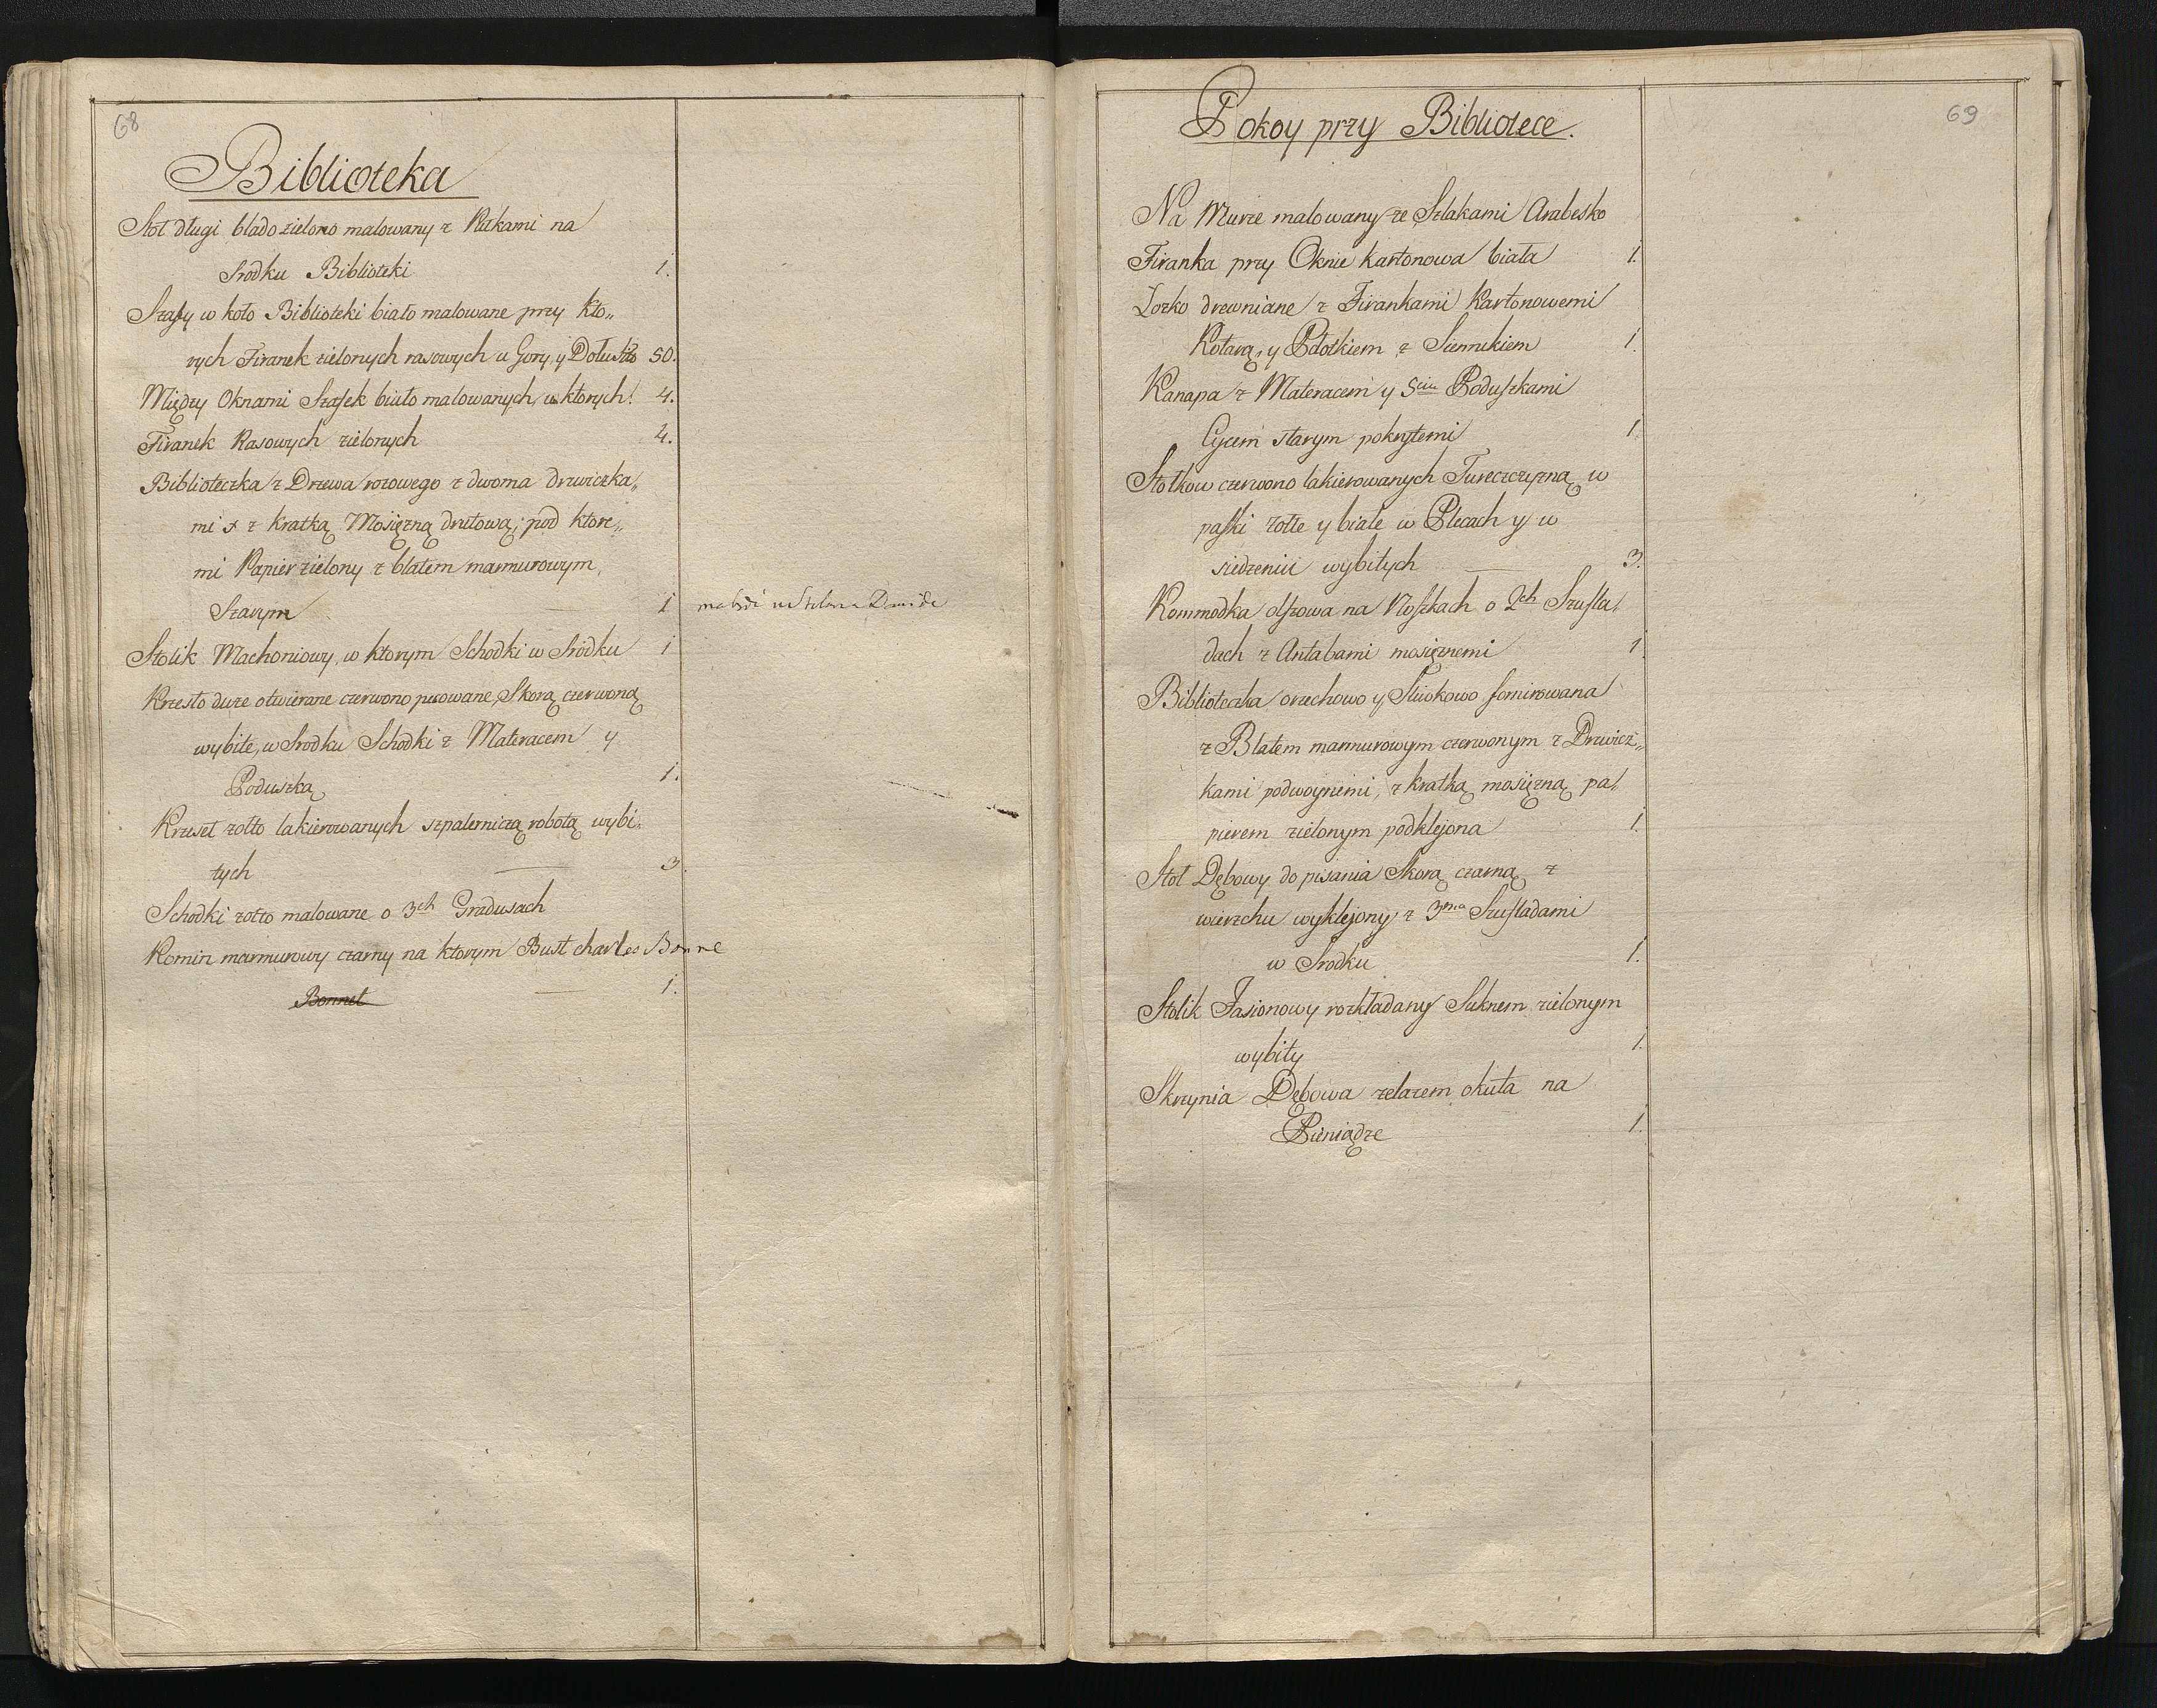 68
Biblioteka
Stoł długi blado zielono malowany z Pułkami na
Srodku Biblioteki 1.
Szafy w koło Biblioteki biało malowane przy kto„
rych Firanek zielonych rasowych u Gory y Dołu 50.
Między Oknami Szafek biało malowanych, w ktorych! 4.
Firanek Rasowych zielonych 4.
Biblioteczka z Drzewa rozowego z dwoma drzwiczka„
mi z kratką Mosięzną drutową, pod ktore„
mi Papier zielony z blatem marmurowym
Szarym 1
Stolik Machoniowy, w ktorym Schodki w Srodku 1
Krzesło duze otwierane czerwono pusowane, Skorą czerwoną
wybite, w Srodku Schodki z Materacem y
Poduszką 1.
Krzeseł zołto lakierowanych szpalerniczą robotą wybi„
tych 3
Schodki zołto malowane o 3ch Gradusach
Komin marmurowy czarny na ktorym Bust charles Bonne
Bonnet 1.
69
Pokoy przy Bibliotece.
Na Murze malowany ze Szlakami Arabesko
Firanka przy Oknie kartonowa biała 1.
Łozko drewniane z Firankami Kartonowemi
Kotarą, y Płotkiem z Siennikiem 1.
Kanapa z Materacem y 5ciu Poduszkami
Cycem starym pokrytemi 1.
Stołkow czerwono lakierowanych Tureczczyzną w
paski zołte y białe w Plecach y w
siedzeniu wybitych 3.
Kommodka olszowa na Noszkach o 2ch Szufla„
dach z Antabami mosięznemi 1.
Biblioteczka orzechowo y Sliwkowo fornirowana
z Blatem marmurowym czerwonym z Drzwicz„
kami podwoynemi, z kratką mosięzną pa„
pierem zielonym podklejona 1.
Stoł Dębowy do pisania Skorą czarną z
wierzchu wyklejony, z 3ma Szufladami
w Srodku 1.
Stolik Jasionowy rozkładany Suknem zielonym
wybity 1.
Skrzynia Dębowa zelazem okuta na
Pieniądze 1.